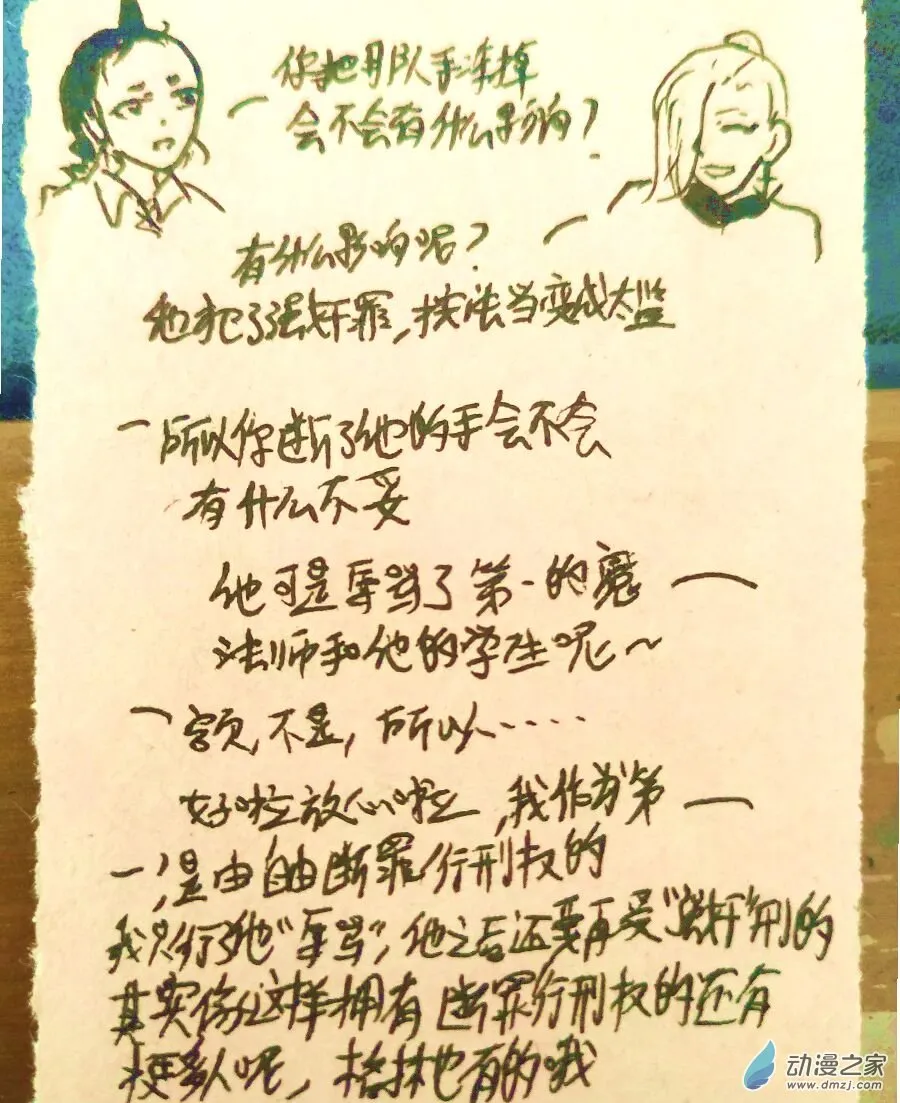 你把那队手淬掉
会不会有什么影响？
有什么影响呢？
他犯了强奸罪，按法当变成太监
所以你断了他的手会不会
有什么不妥
他可是辱骂了第一的魔
法师和他的学生呢～
额，不是，所以……
好啦放心啦，我作为第
一，是由自由断罪行刑权的
我只行了他“辱骂”，他之后还要再受“强奸”刑的
其实像这样拥有断罪行刑权的还有
很多人呢，格林也有的哦
动漫之家
www.dmzj.com